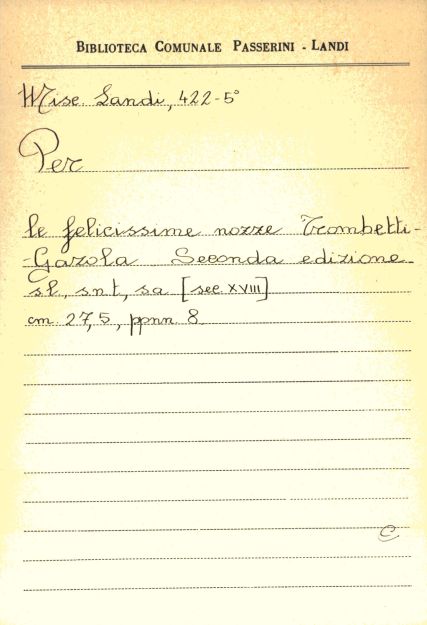 BIBLIOTECA COMUNALE PASSERINI - LANDI
Misc. Landi, 422-5°
Per
le felicissime nozze Trombetti-
-Gazola Seconda edizione
sl, snt, sa [sec XVIII]
cm 27,5, ppnn 8.
C